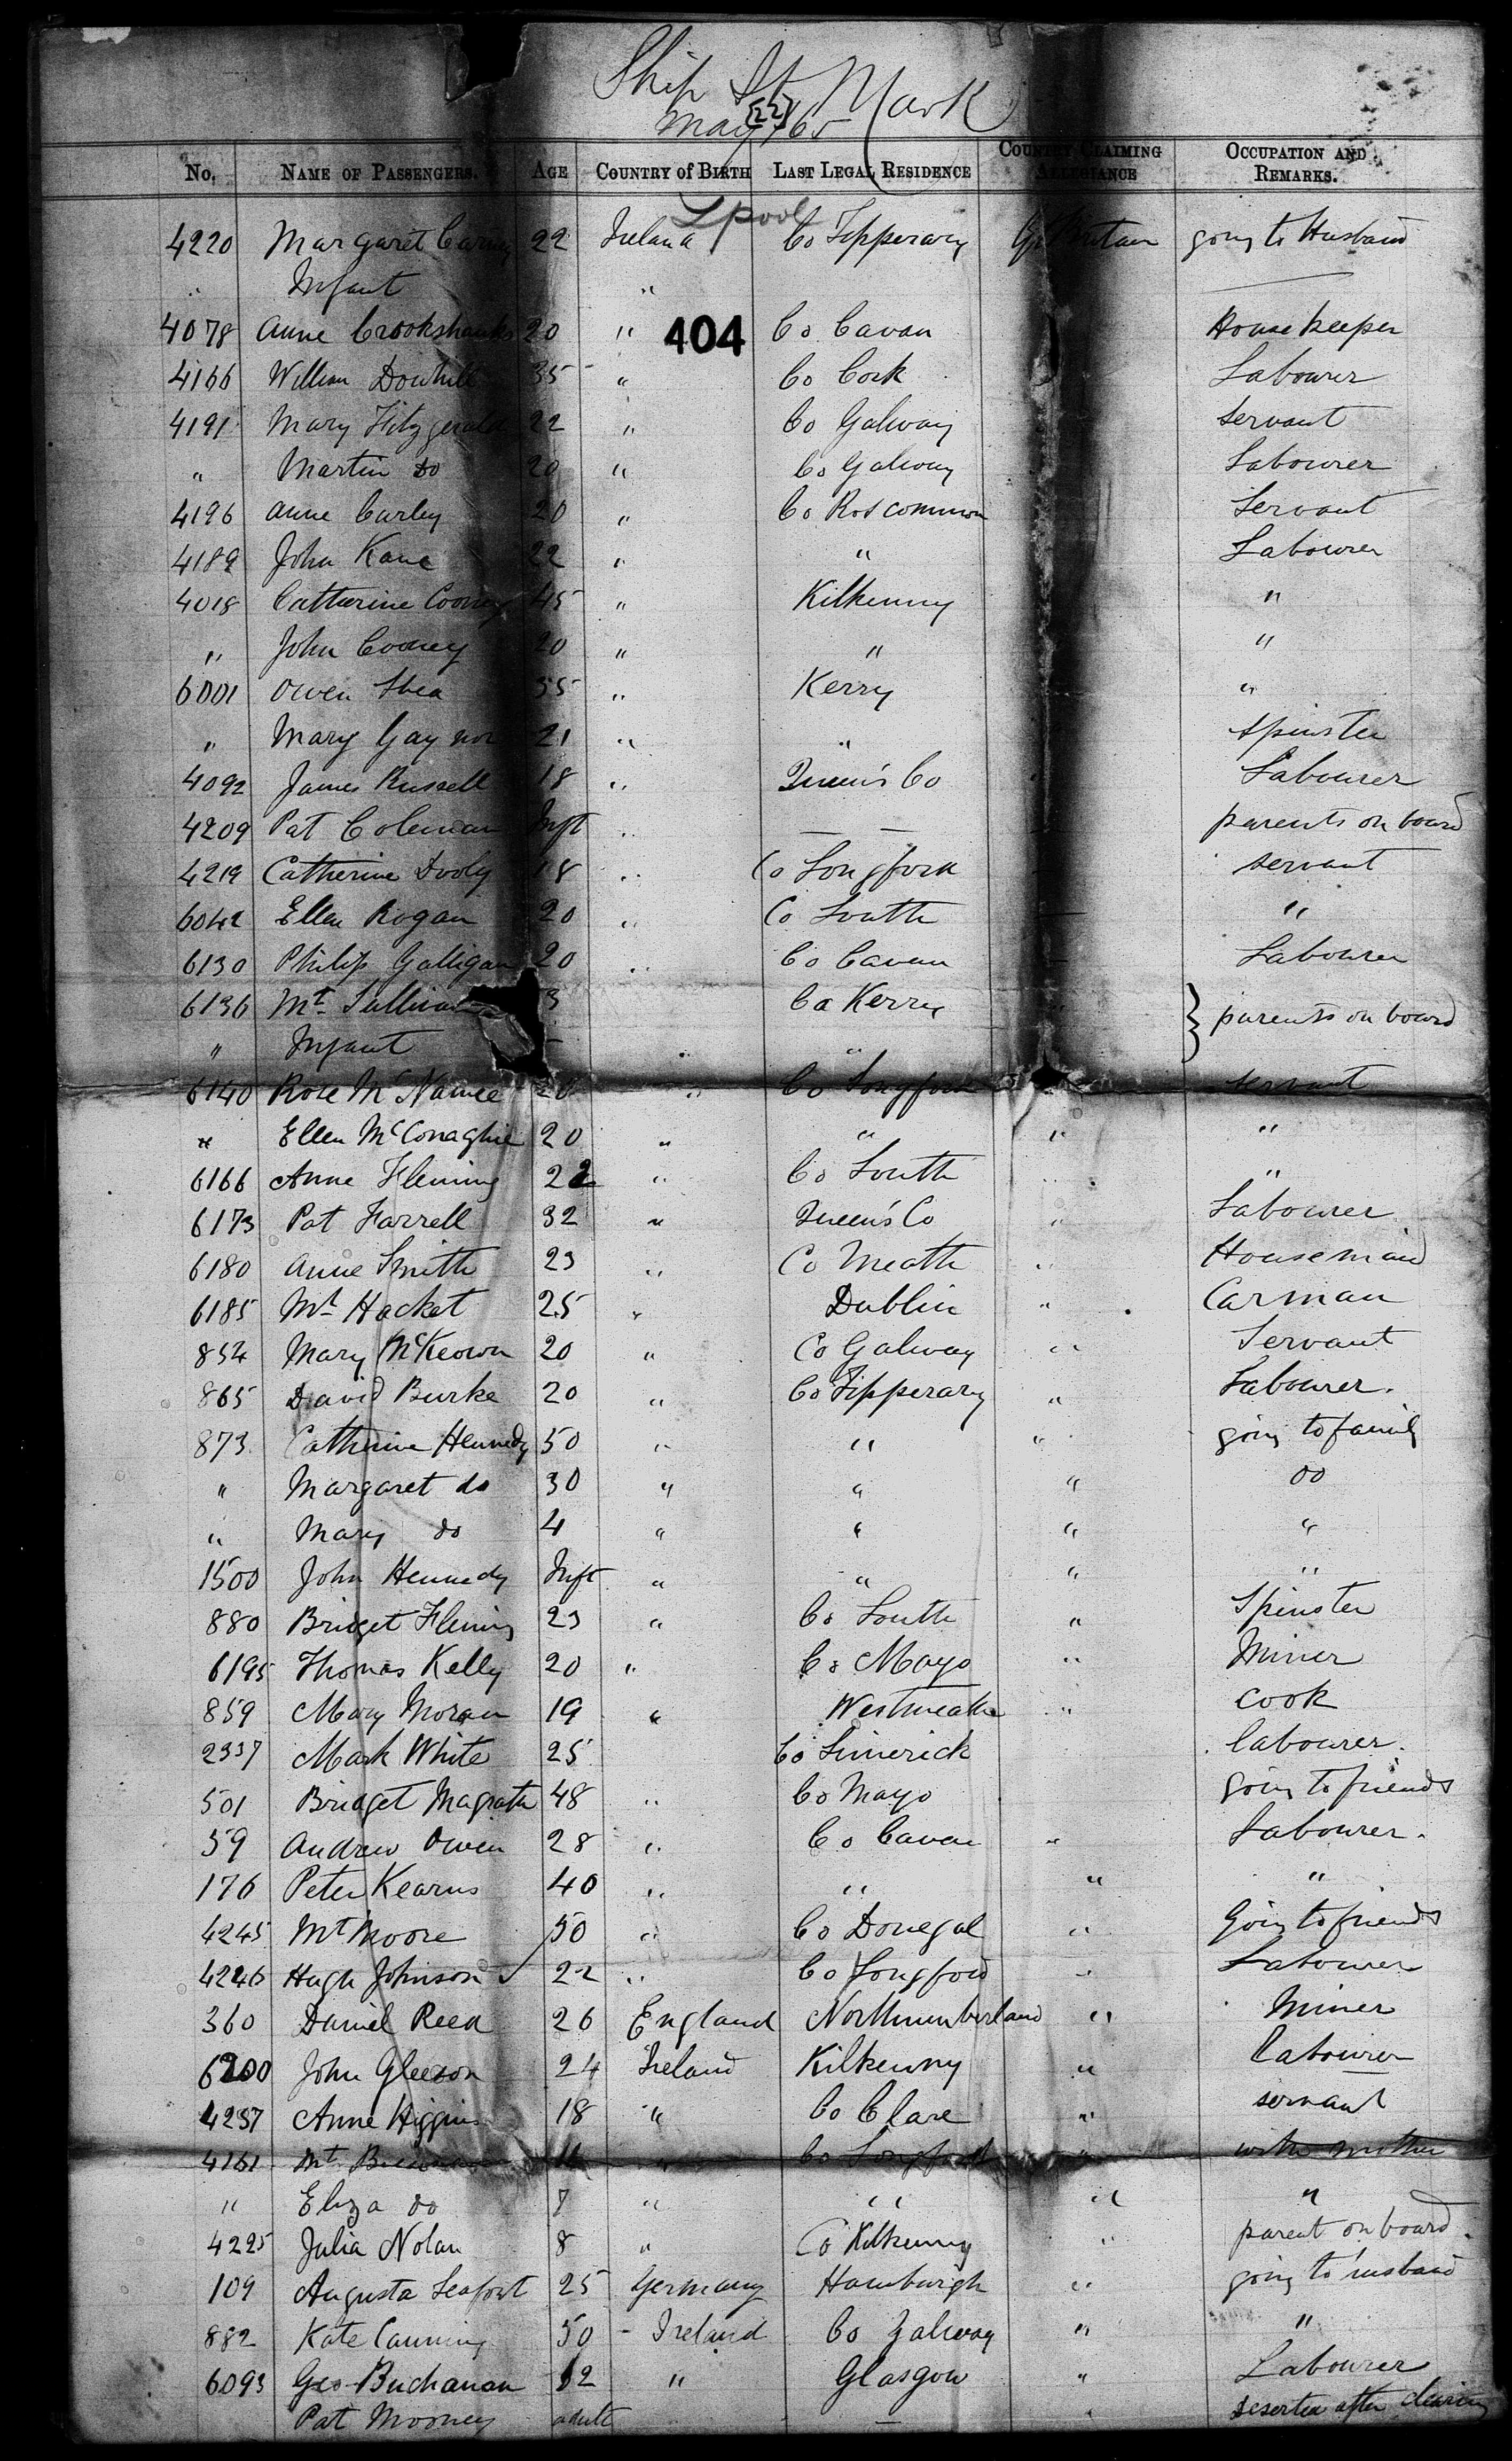 Ship St Mark
[22]
May /65
No. NAME OF PASSENGERS. AGE COUNTRY of BIRTH LAST LEGAL RESIDENCE COUNTRY CLAIMING ALLEGIANCE OCCUPATION AND REMARKS.
Lpool
4220 Margaret 22 Ireland Co Tipperary Gt Britain going to Husband
" Infant "
4078 Anne Crookshanks 20 " 404 Co Cavan Housekeeper
4166 William 35 " Co Cork Labourer
4191 Mary Fitzgerald 22 " Co Galway servant
" Martin do 20 " Co Galway Labourer
4196 Anne Curley 20 " Co Roscommon Servant
4189 John Kane 22 " " Labourer
4018 Catherine Cooney 45 " Kilkenny "
" John Cooney 20 " " "
6001 Owen Shea 35 " Kerry "
" Mary Gaynor 21 " " spinster
4092 James Russell 18 " Queen's Co Labourer
4209 Pat Coleman Inft " — — parents on board
4219 Catherine Dooly 18 " Co Longford servant
6042 Ellen Rogan 20 " Co Louth "
6130 Philip Galligan 20 " Co Cavan Labourer
6136 Mt Sullivan 3 Co Kerry } parents on board
" Infant " "
6140 Rose McNamee 20 " Co Longford servant
" Ellen McConaghie 20 " " " "
6166 Anne Fleming 22 " Co Louth " "
6173 Pat Farrell 32 " Queen's Co " Labourer
6180 Anne Smith 23 " Co Meath " Housemaid
6185 Mt Hacket 25 " Dublin " Carman
854 Mary McKeown 20 " Co Galway " Servant
865 David Burke 20 " Co Tipperary " Labourer.
873 Catherine Kennedy 50 " " " going to family
" Margaret do 30 " " " do
" Mary do 4 " " " "
1500 John Kennedy Inft " " " "
880 Bridget Fleming 23 " Co Louth " Spinster
6195 Thomas Kelly 20 " Co Mayo " Miner
859 Mary Moran 19 " Westmeath " cook
2337 Mark White 25 Co Limerick labourer.
501 Bridget Magrath 48 " Co Mayo going to friends
59 Andrew Owen 28 " Co Cavan " Labourer.
176 Peter Kearns 40 " " " "
4245 Mt Moore 50 " Co Donegal " Going to friends
4246 Hugh Johnson 22 " Co Longford " Labourer
360 Daniel Reed 26 England Northumberland " Miner
6200 John Gleeson 24 Ireland Kilkenny " labourer
4237 Anne Higgins 18 " Co Clare " servant
4161 Mt 11 " Co Longford " with mother
" Eliza do 7 " " " "
4225 Julia Nolan 8 " Co Kilkenny " parent on board.
109 Augusta 25 Germany Hamburgh " going to husband
882 Kate Canning 50 - Ireland Co Galway " "
6093 Geo Buchanan 52 " Glasgow " Labourer
Pat Mooney adult — " Deserted after clearing